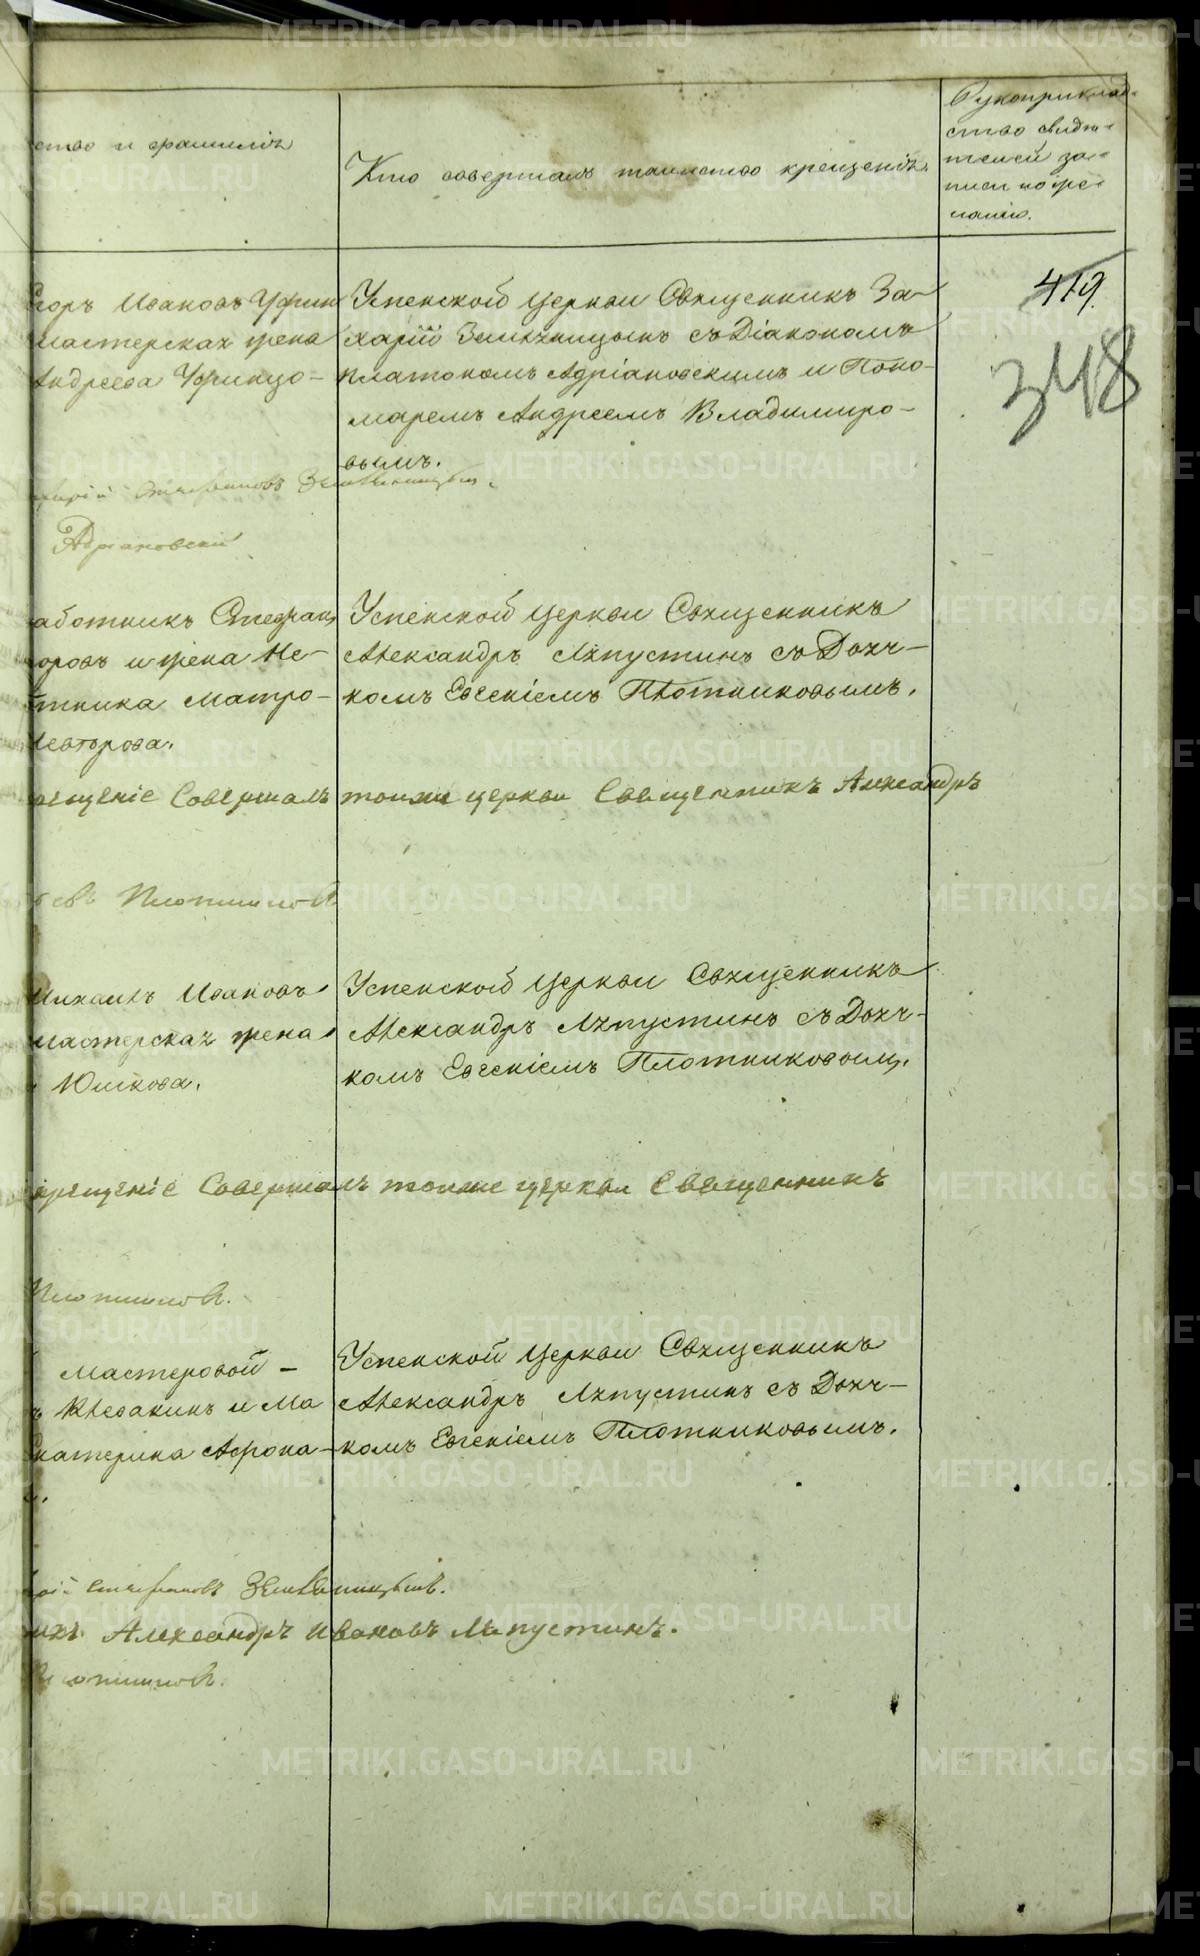 ство и фамилія
Кто совершалъ таинство крещенія.
Рукоприклад-
ство свидѣ-
телей за-
писи по же-
ланію.
419.
348
Егоръ Ивановъ Уфин
мастерская жена
Андреева Уфинцо-
Успенской церкви Священникъ За-
харій Земляницынъ съ Діакономъ
Платономъ Адріановскимъ и Поно-
маремъ Андреемъ Владимиро-
вымъ.
Стефановъ Земляницынъ.
Адриановскій
аботникъ Стефанъ
оровъ и жена Не-
тника Матро-
Успенской церкви Священникъ
Александръ Ляпустинъ съ Дьяч-
комъ Евгеніемъ Плотниковымъ.
рещеніе Совершалъ тоиже церкви Священникъ Александръ
Плотниковъ
Михаилъ Ивановъ
мастерская жена
Юшкова.
Успенской церкви Священникъ
Александръ Ляпустинъ съ Дьяч-
комъ Евгеніемъ Плотниковымъ.
крещеніе Совершалъ тоиже церкви Священникъ
Плотниковъ.
мастеровой -
Клевакинъ и Ма
Екатерина Афона-
Успенской церкви Священникъ
Александръ Ляпустинъ съ Дьяч-
комъ Евгеніемъ Плотниковымъ.
Стефановъ Земляницынъ.
Александръ Ивановъ Ляпустинъ.
Плотниковъ.
METRIKI.GASO-URAL.RU